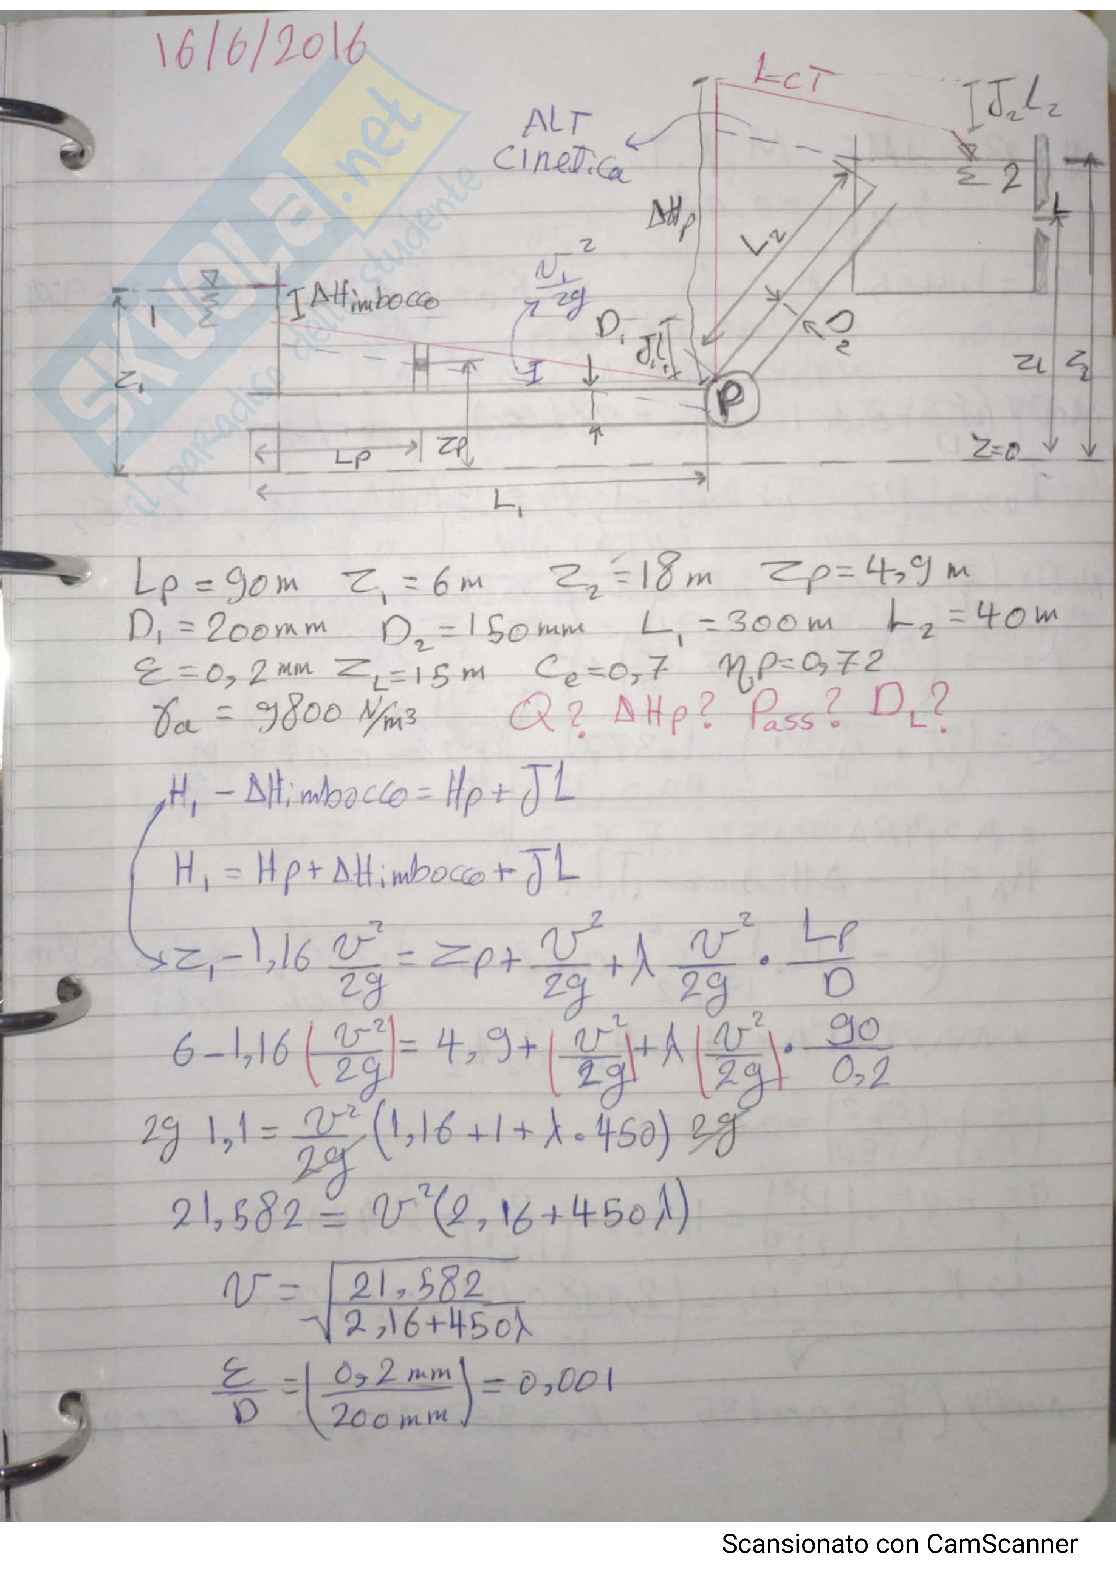 16/6/2016
LcT
J₂L₂
ALT
Cinetica
2
L
ΔHp
L₂
v₁²/2g
ΔHimbocco
1
D₁
J₁L₁
D₂
z₁
I
P
zL
z₂
Lp
zp
z=0
L₁
SKUOLA.net
il paradiso dello studente
Lp = 90 m z₁ = 6 m z₂ = 18 m zp = 4,9 m
D₁ = 200 mm D₂ = 150 mm L₁ = 300 m L₂ = 40 m
ε = 0,2 mm zL = 15 m Ce = 0,7 ηp = 0,72
γa = 9800 N/m³ Q? ΔHp? Pass? DL?
H₁ - ΔHimbocco = Hp + JL
H₁ = Hp + ΔHimbocco + JL
z₁ - 1,16 v²/2g = zp + v²/2g + λ v²/2g · Lp/D
6 - 1,16 (v²/2g) = 4,9 + (v²/2g) + λ (v²/2g) · 90/0,2
2g 1,1 = v²/2g (1,16 + 1 + λ · 450) 2g
21,582 = v² (2,16 + 450λ)
v = √(21,582/2,16+450λ)
ε/D = (0,2 mm/200 mm) = 0,001
Scansionato con CamScanner